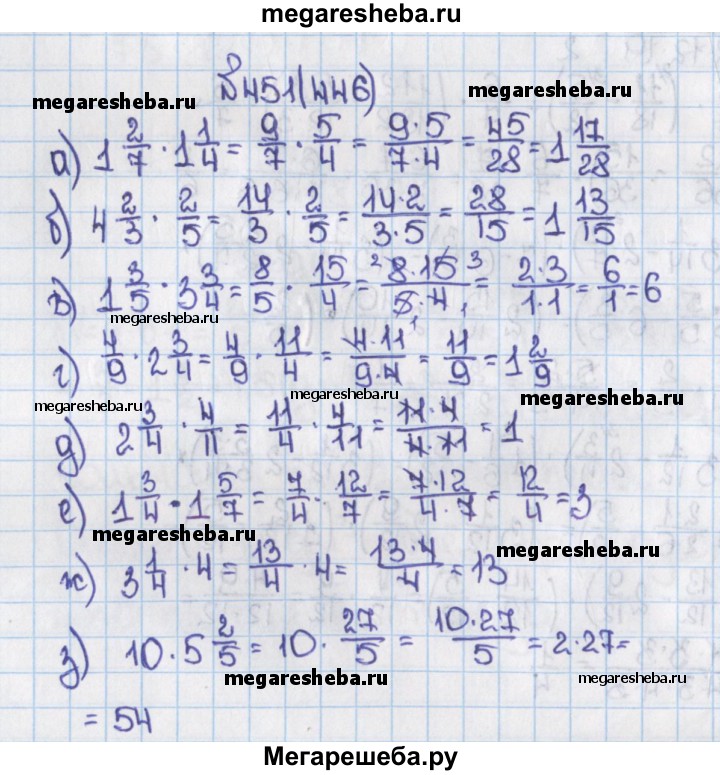 megaresheba.ru
№451(446)
megaresheba.ru megaresheba.ru
а) 1 2/7 · 1 1/4 = 9/7 · 5/4 = 9·5/7·4 = 45/28 = 1 17/28
б) 4 2/3 · 2/5 = 14/3 · 2/5 = 14·2/3·5 = 28/15 = 1 13/15
в) 1 3/5 · 3 3/4 = 8/5 · 15/4 = 2 8·15 3/5·4 1 = 2·3/1·1 = 6/1 = 6
megaresheba.ru megaresheba.ru
г) 4/9 · 2 3/4 = 4/9 · 11/4 = 4·11/9·4 = 11/9 = 1 2/9
megaresheba.ru megaresheba.ru megaresheba.ru
д) 2 3/4 · 4/11 = 11/4 · 4/11 = 11·4/4·11 = 1
е) 1 3/4 · 1 5/7 = 7/4 · 12/7 = 7·12/4·7 = 12/4 = 3
megaresheba.ru megaresheba.ru
ж) 3 1/4 · 4 = 13/4 · 4 = 13·4/4 = 13
з) 10 · 5 2/5 = 10 · 27/5 = 10·27/5 = 2·27 =
megaresheba.ru megaresheba.ru
= 54
Мегарешеба.ру